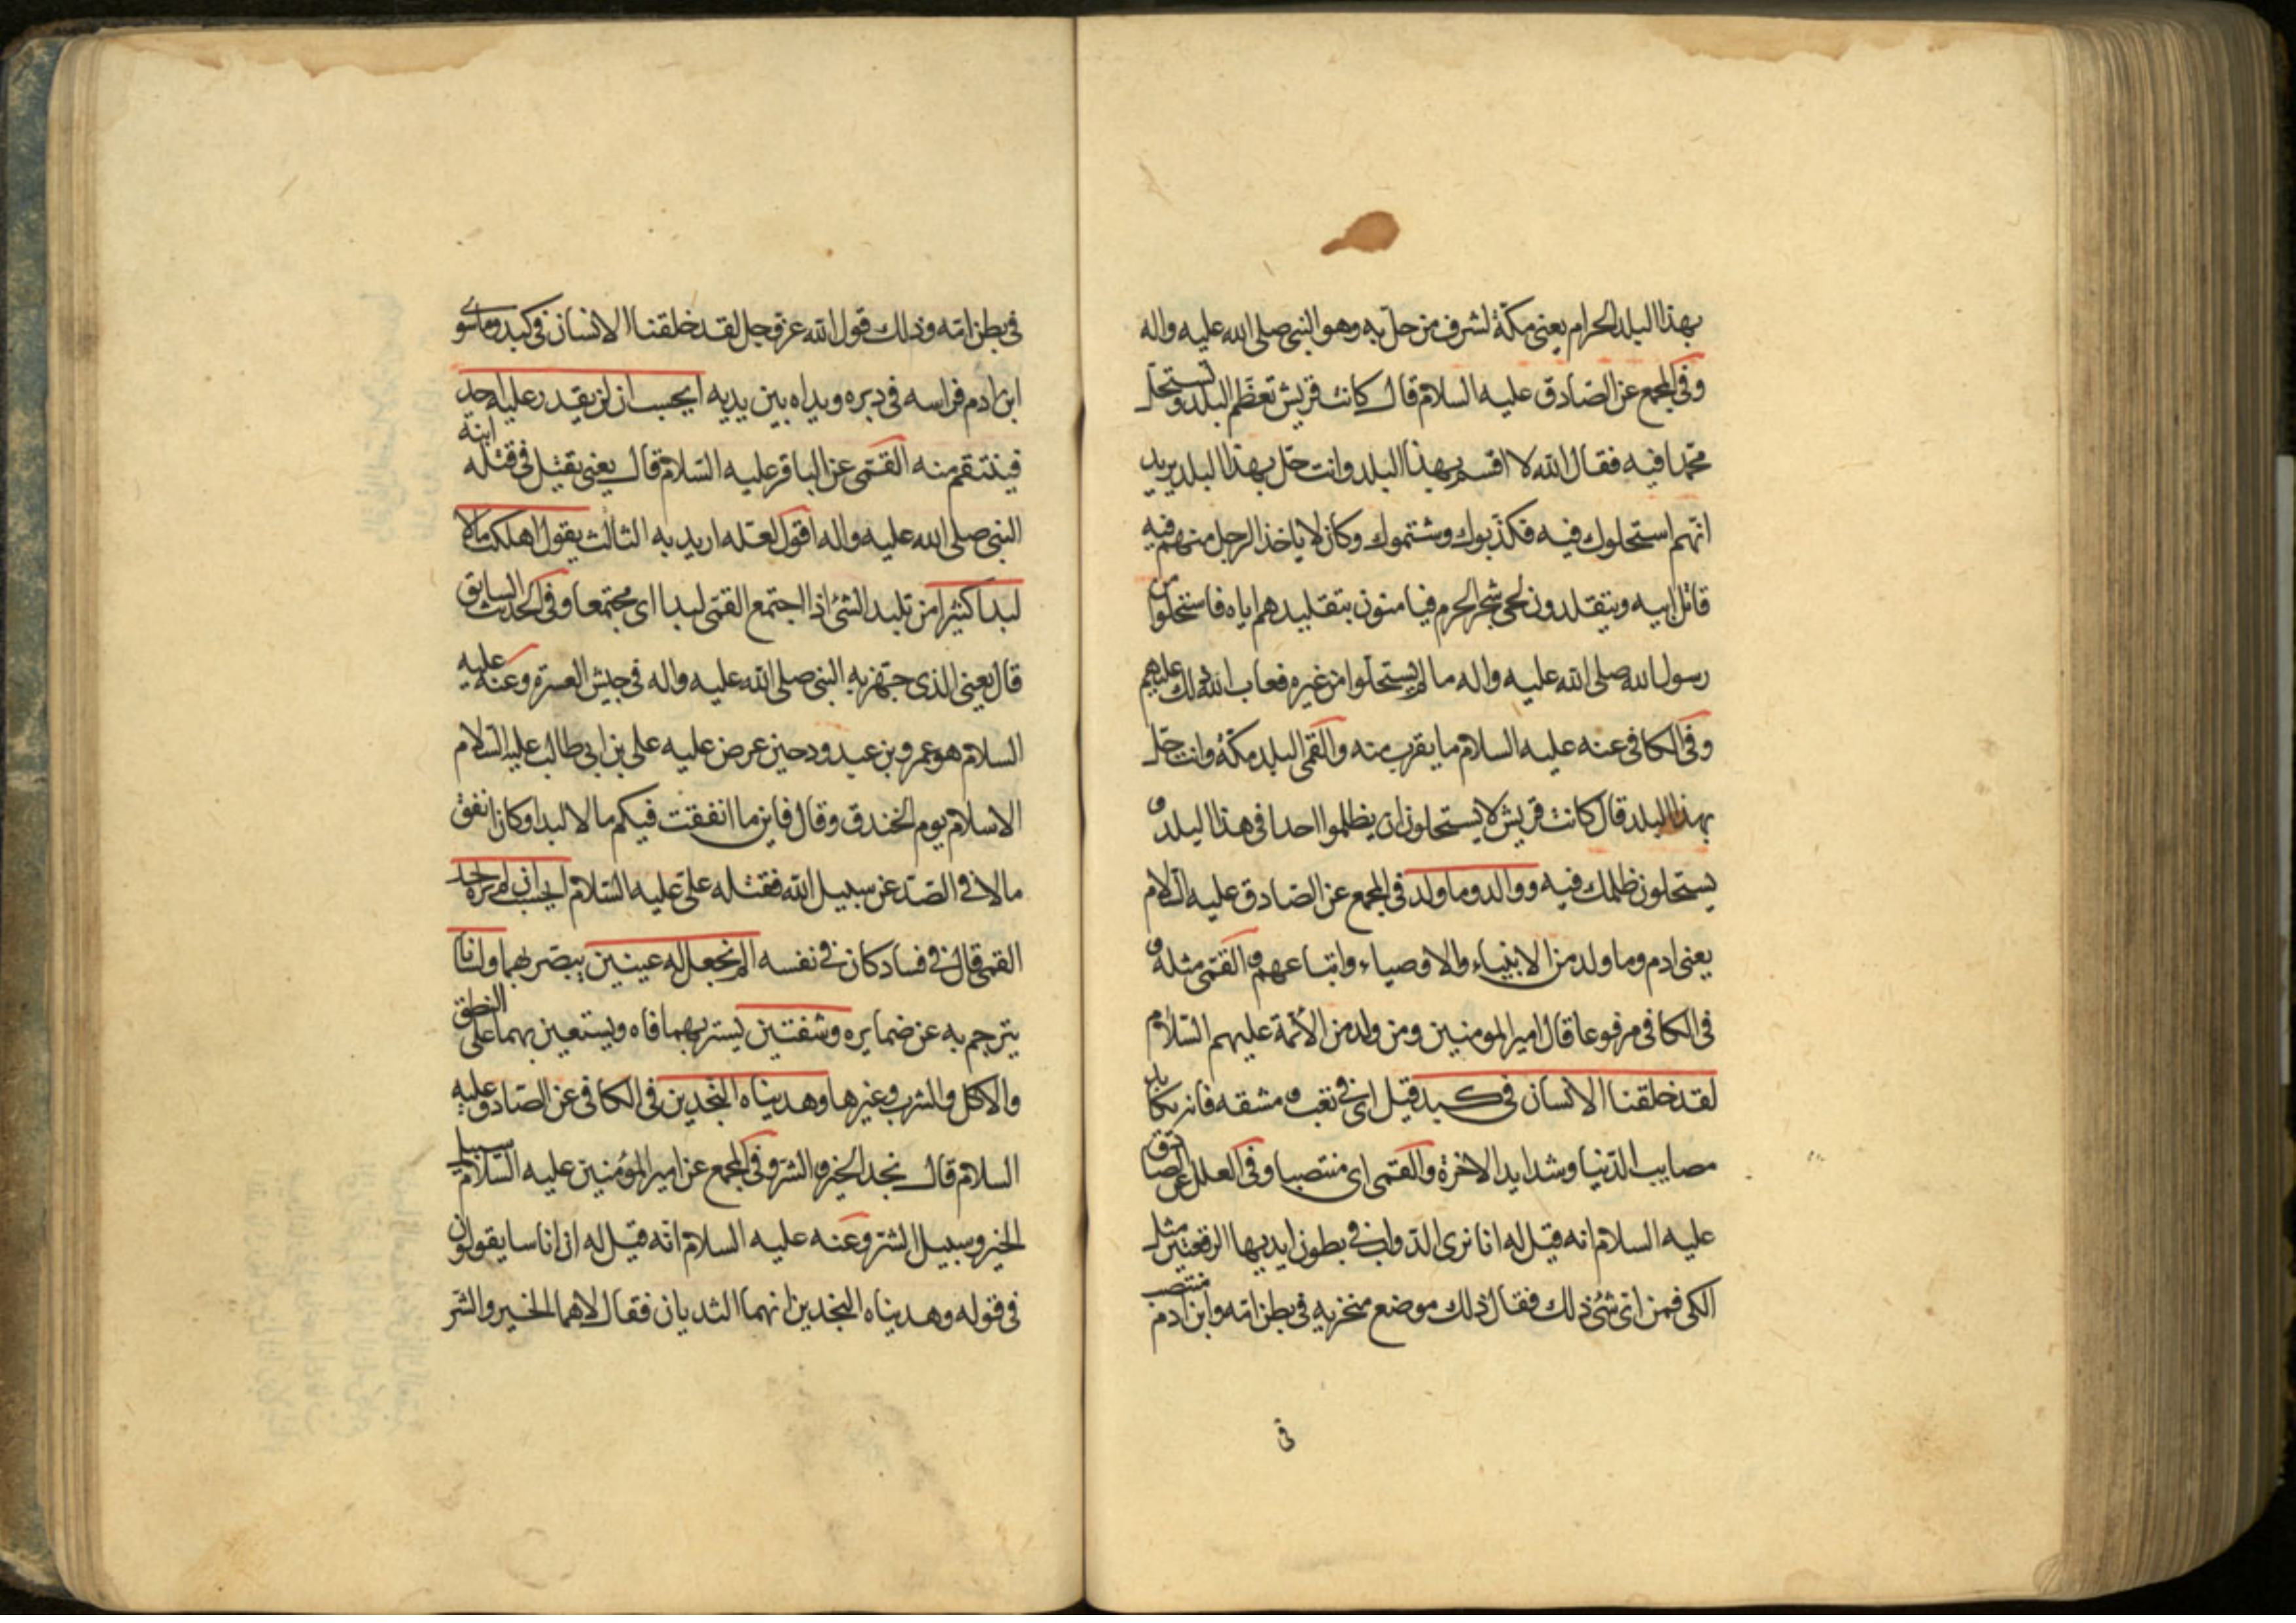 بهذا البلد الحرام يعنى مكة لشرف من حل به وهو النبى صلى الله عليه واله
وفى المجمع عن الصادق عليه السلام قال كانت قريش تعظم البلد وتستحل
محمدا فيه فقال الله لا اقسم بهذا البلد وانت حل بهذا البلد يريد
انهم استحلوك فيه فكذبوك وشتموك وكان لا ياخذ الرجل منهم فيه
قاتل ابيه ويتقلدون لحى شجر الحرم فيامنون بتقليدهم اياه فاستحلوا من
رسول الله صلى الله عليه واله ما لم يستحلوا من غيره فعاب الله ذلك عليهم
وفى الكافى عنه عليه السلام ما يقرب منه والقمى البلد مكة وانت حل
بهذا البلد قال كانت قريش لا يستحلون ان يظلموا احدا فى هذا البلد و
يستحلون ظلمك فيه ووالد وما ولد فى المجمع عن الصادق عليه السلام
يعنى ادم وما ولد من الانبياء والاوصياء واتباعهم والقمى مثله و
فى الكافى مرفوعا قال امير المومنين ومن ولد من الائمة عليهم السلام
لقد خلقنا الانسان فى كبد قيل اى فى تعب ومشقه فانه يكابد
مصايب الدنيا وشدايد الاخرة والقمى اى منتصبا وفى العلل عن الصادق
عليه السلام انه قيل له انا نرى الدواب فى بطون ايديها الرقعتين مثل
الكى فمن اى شئ ذلك فقال ذلك موضع منخريه فى بطن امه وابن ادم منتصب
فى
فى بطن امه وذلك قول الله عز وجل لقد خلقنا الانسان فى كبد وما سوى
ابن ادم فراسه فى دبره ويداه بين يديه ايحسب ان لن يقدر عليه احد
فينتقم منه القمى عن الباقر عليه السلام قال يعنى يقتل فى قتله ابنة
النبى صلى الله عليه واله اقول لعله اريد به الثالث يقول اهلكت مالا
لبدا كثيرا من تلبد الشئ اذا اجتمع القمى لبدا اى مجتمعا وفى الحديث السابق
قال يعنى الذى جهز به النبى صلى الله عليه واله فى جيش العسرة وعنه عليه
السلام هو عمرو بن عبد ود حين عرض عليه على بن ابى طالب عليه السلام
الاسلام يوم الخندق وقال فاين ما انفقت فيكم مالا لبدا وكان انفق
مالا فى الصد عن سبيل الله فقتله على عليه السلام ايحسب ان لم يره احد
القمى قال فى فساد كان فى نفسه الم نجعل له عينين يبصر بهما ولسانا
يترجم به عن ضمايره وشفتين يستر بهما فاه ويستعين بهما على النطق
والاكل والشرب وغيرها وهديناه النجدين فى الكافى عن الصادق عليه
السلام قال نجد الخير والشر وفى المجمع عن امير المؤمنين عليه السلام سبيل
الخير وسبيل الشر وعنه عليه السلام انه قيل له ان اناسا يقولون
فى قوله وهديناه النجدين انهما الثديان فقال لا هما الخير والشر